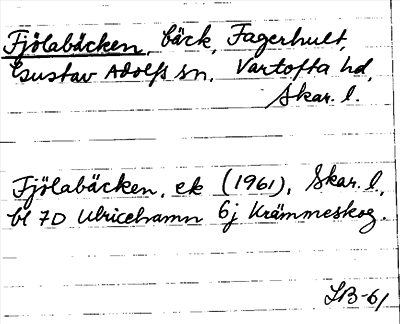 Fjölabäcken, bäck, Fagerhult,
Gustav Adolfs sn, Vartofta hd,
Skar. l.
Fjölabäcken, ek (1961), Skar. l,
bl 7D Ulricehamn 6j Krämmeskog.
LB-61